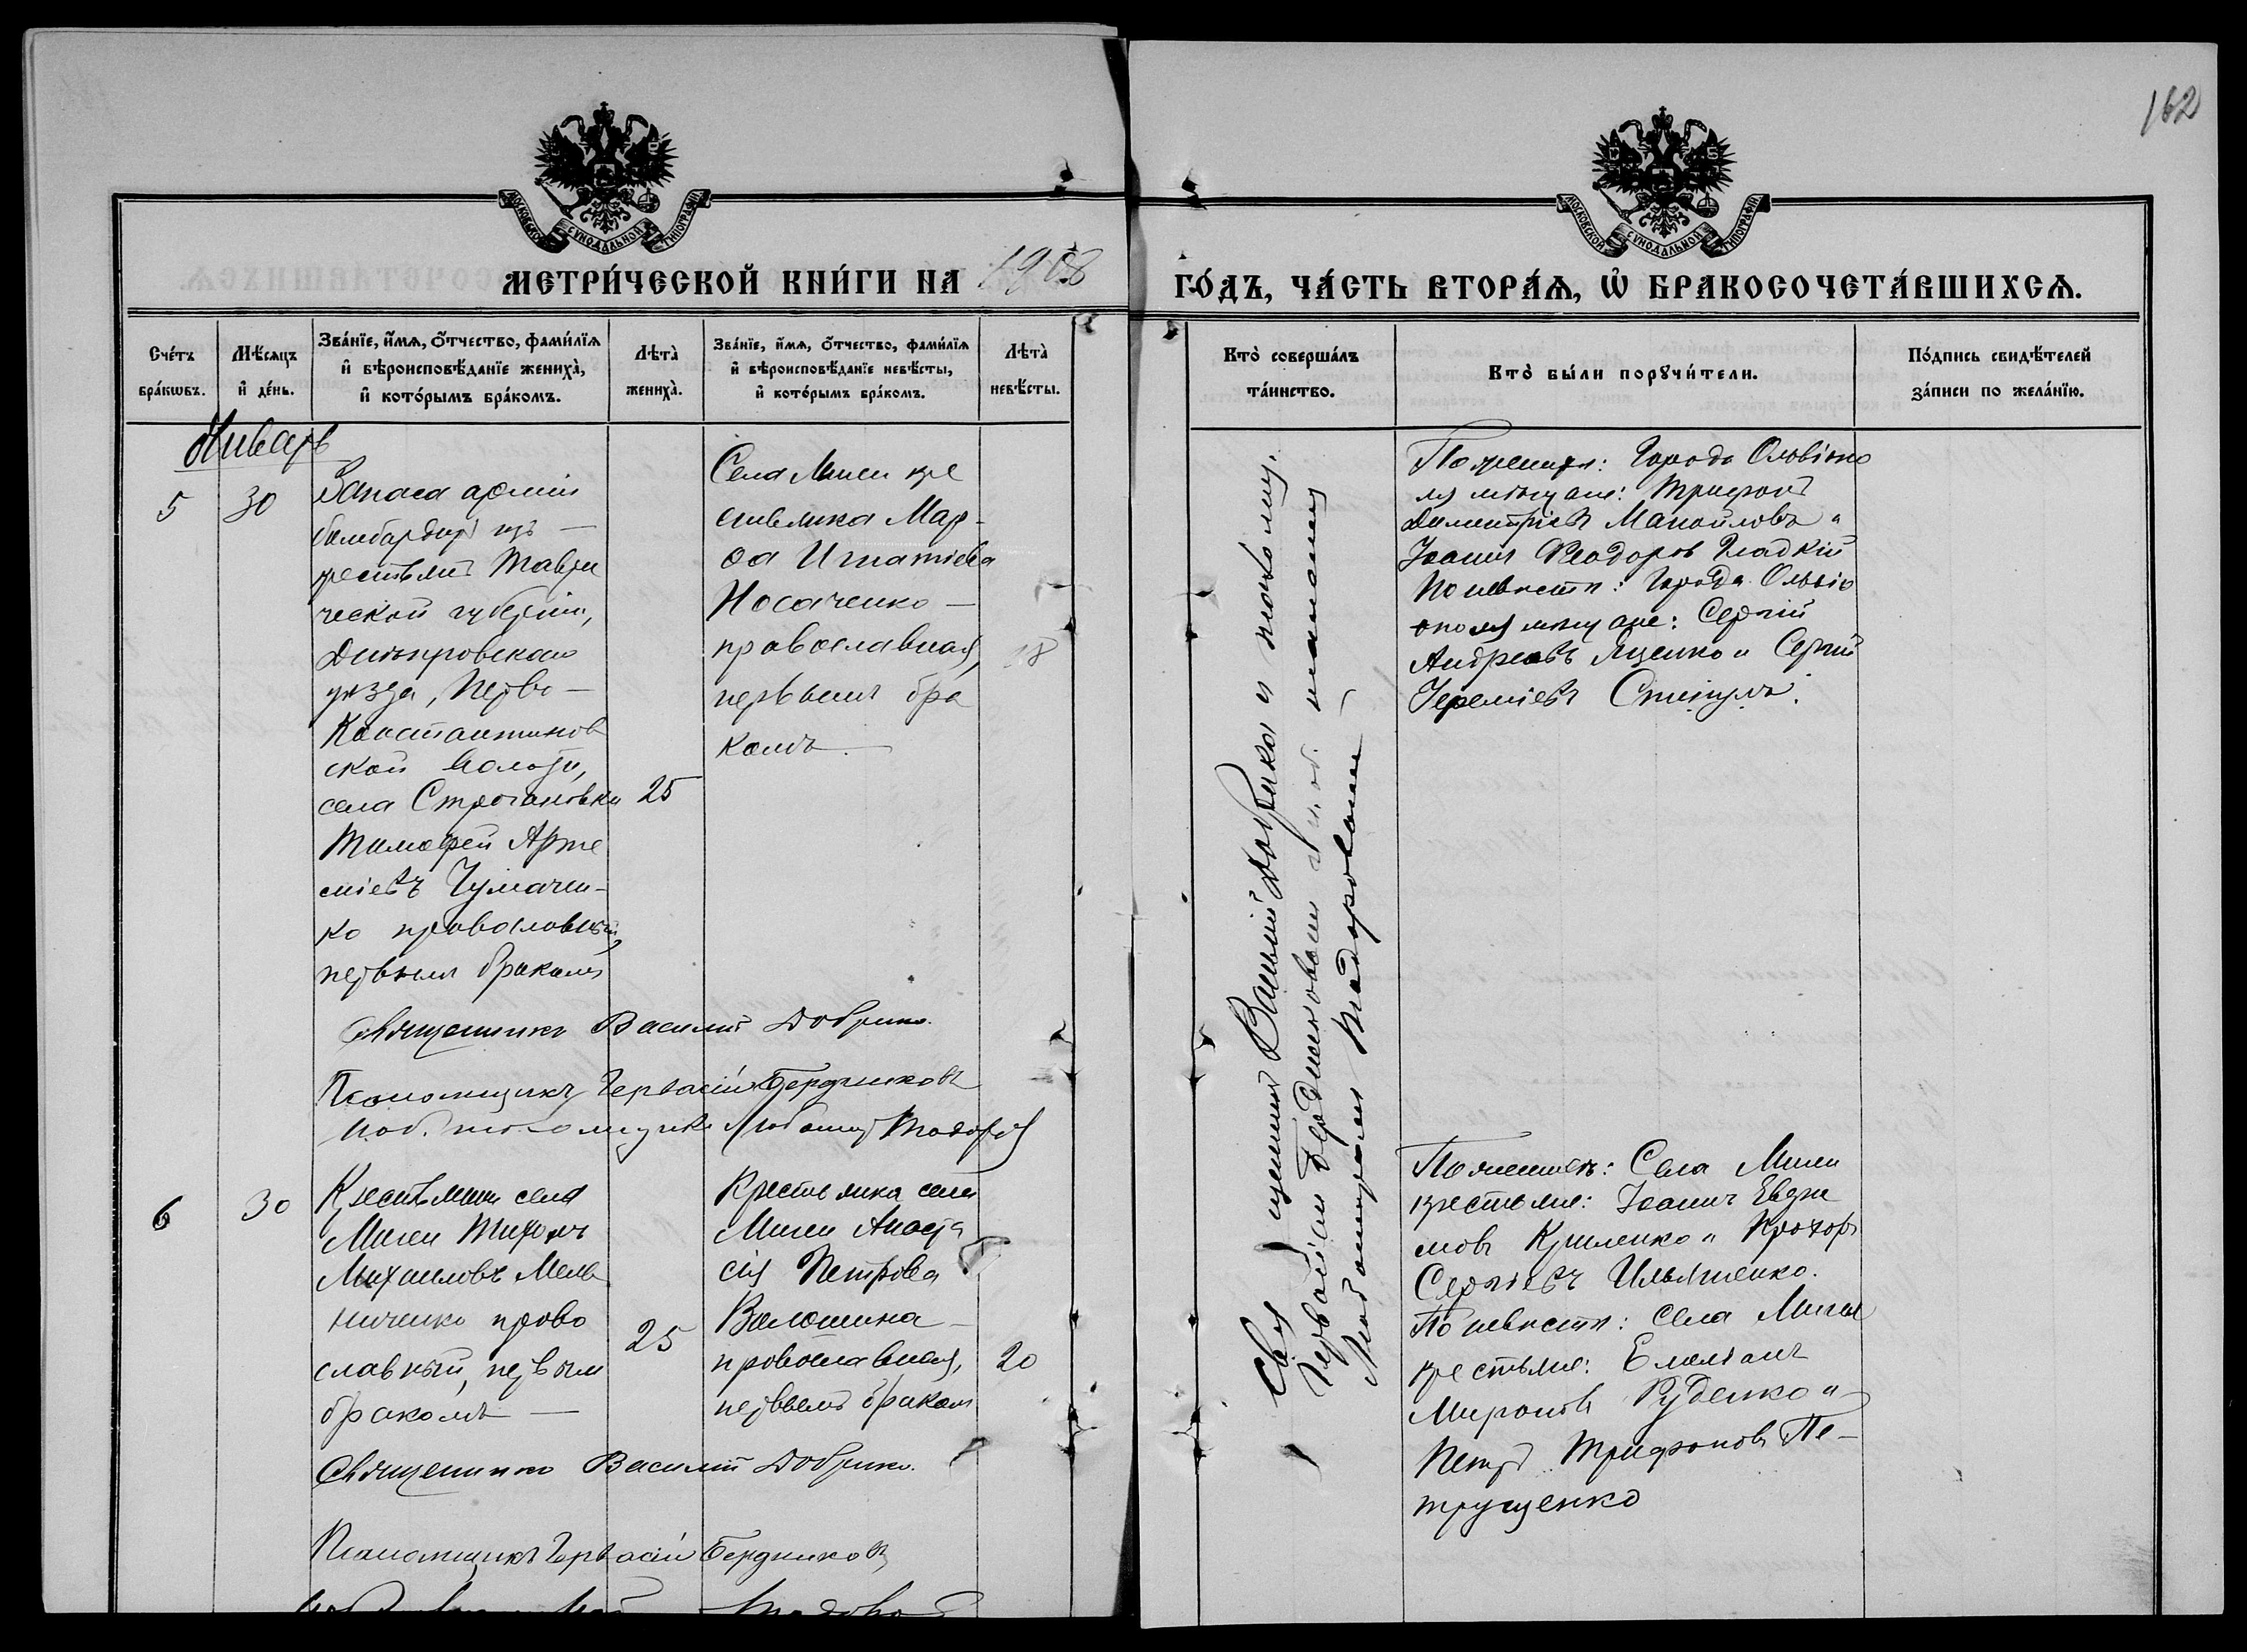 162
МОСКОВСКОЙ СѴНОДАЛЬНОЙ ТИПОГРАФІИ
МОСКОВСКОЙ СѴНОДАЛЬНОЙ ТИПОГРАФІИ
МЕТРИ́ЧЕСКОЙ КНИ́ГИ НА 1908 ГО́ДЪ, ЧА́СТЬ ВТОРА́Ѧ, Ѽ БРАКОСОЧЕТА́ВШИХСѦ.
Сче́тъ бра́кѡвъ.
Мѣ́сѧцъ и҆ де́нь.
Зва́нїе, и҆́мѧ, ѻ҆́тчество, фами́лїѧ и҆ вѣроисповѣ́данїе жениха̀, и҆ кото́рымъ бра́комъ.
Лѣта̀ жениха̀.
Зва́нїе, и҆́мѧ, ѻ҆́тчество, фами́лїѧ и҆ вѣроисповѣ́данїе невѣ́сты, и҆ кото́рымъ бра́комъ.
Лѣта̀ невѣ́сты.
Кто̀ соверша́лъ та́инство.
Кто̀ бы́ли порꙋчи́тели.
По́дпись свидѣ́телей за́писи по жела́нїю.
Январь
5
30
Запаса арміи
бомбардиръ изъ —
крестьянъ Таври
ческой губерніи,
Днѣпровскаго
уѣзда, Перво-
Константинов
ской Волости,
села Строгановки
Тимофей Арте
міевъ Чумачен-
ко православный,
первымъ бракомъ
25
Села Мигеи кре
стьянка Мар-
ѳа Игнатіева
Носаченко —
православная,
первымъ бра
комъ. —
18
Священникъ Василій Добрика и псаломщ.
Гервасій Бердниковъ и и. об. псаломщ
Любомиръ Тодоровъ —
По женихѣ: Города Ольвіопо
ля мѣщане: Трифонъ
Димитріевъ Манойловъ и
Іоаннъ Ѳеодоровъ Гладкій
По невѣстѣ: Города Ольвіо
поля мѣщане: Сергій
Андреевъ Яценко и Сергій
Іереміевъ
Священникъ Василій Добрика.
Псаломщикъ Гервасій Бердниковъ
И об. псаломщика Любомиръ Тодоровъ
6
30
Крестьянинъ села
Мигеи Тихонъ
Михаиловъ Мель
ниченко право
славный, первымъ
бракомъ —
25
Крестьянка села
Мигеи Анаста
сія Петрова
Волошина —
православная,
первымъ бракомъ
20
По женихѣ: Села Мигеи
крестьяне: Іоаннъ Евдоки
мовъ и Прохоръ
Сергіевъ Ильяшенко.
По невѣстѣ: Села Мигеи
крестьяне: Емеліанъ
Мироновъ Руденко и
Петръ Трифоновъ Пе-
трущенко
Священникъ Василій Добрика.
Псаломщикъ Гервасій Бердниковъ